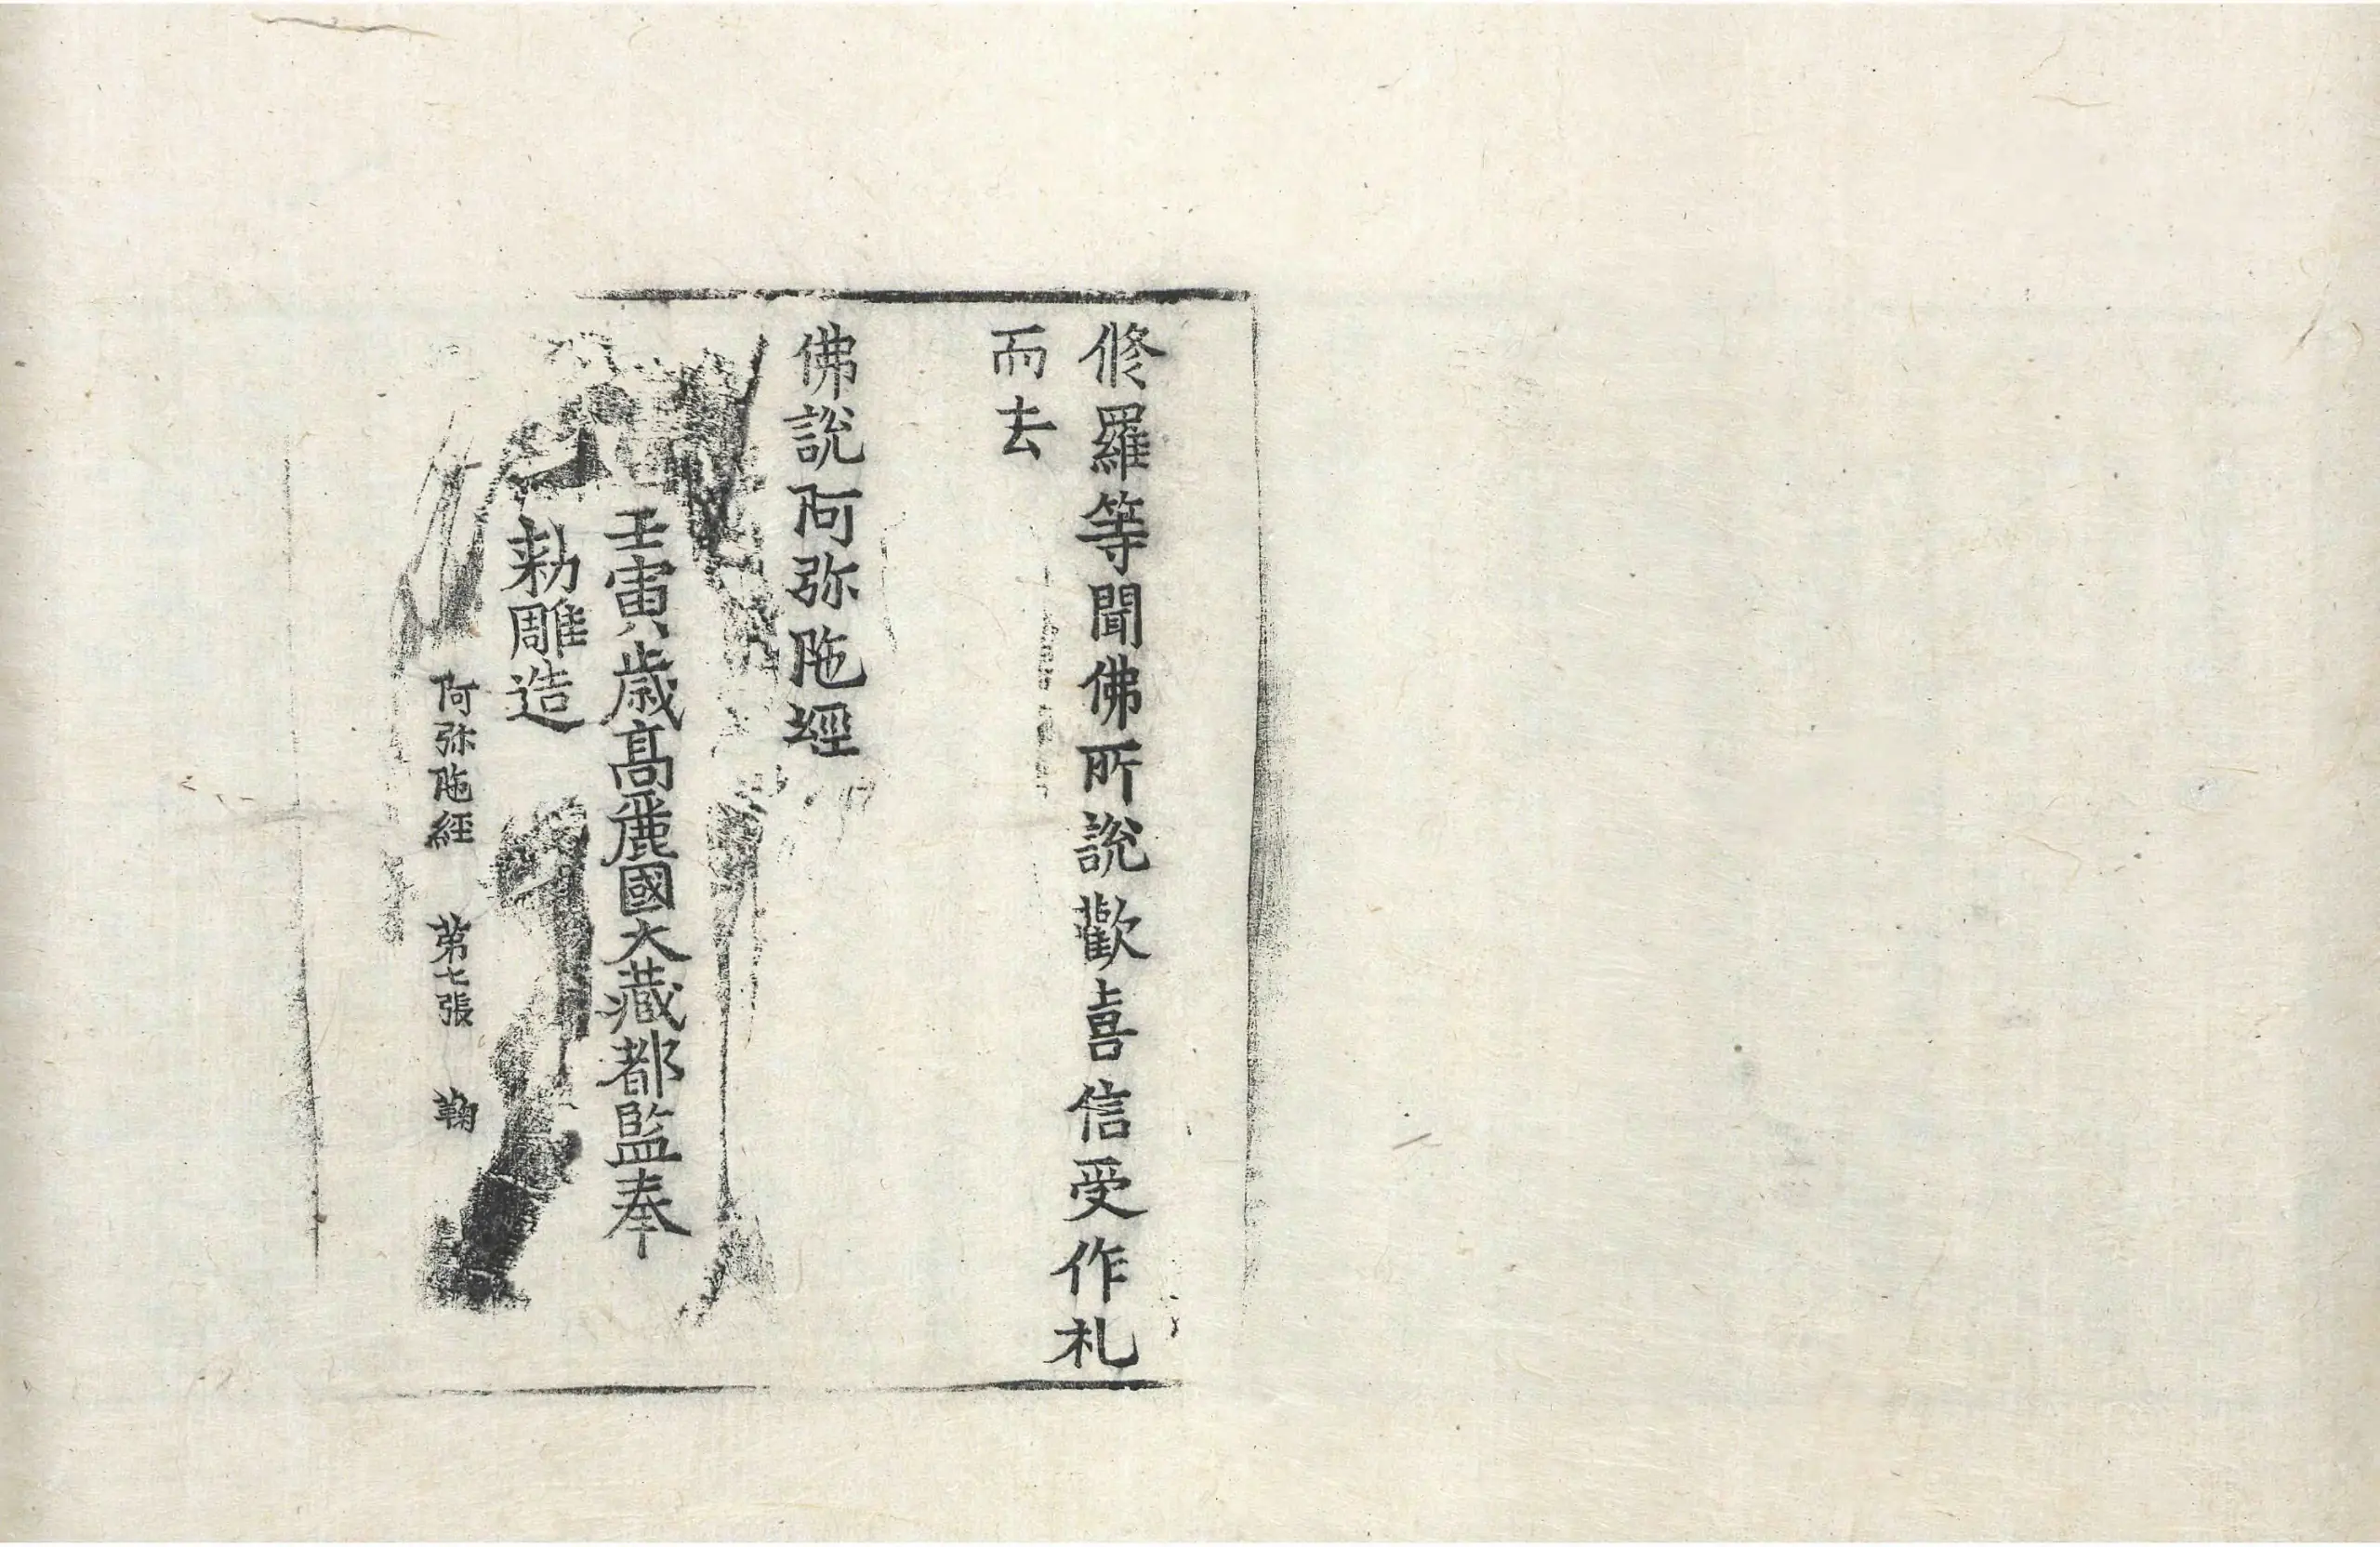 脩羅等聞佛所說歡喜信受作札
而去
佛說阿弥陁經
壬寅歲高麗國大藏都監奉
勑雕造
阿弥陁經 第七張 鞠